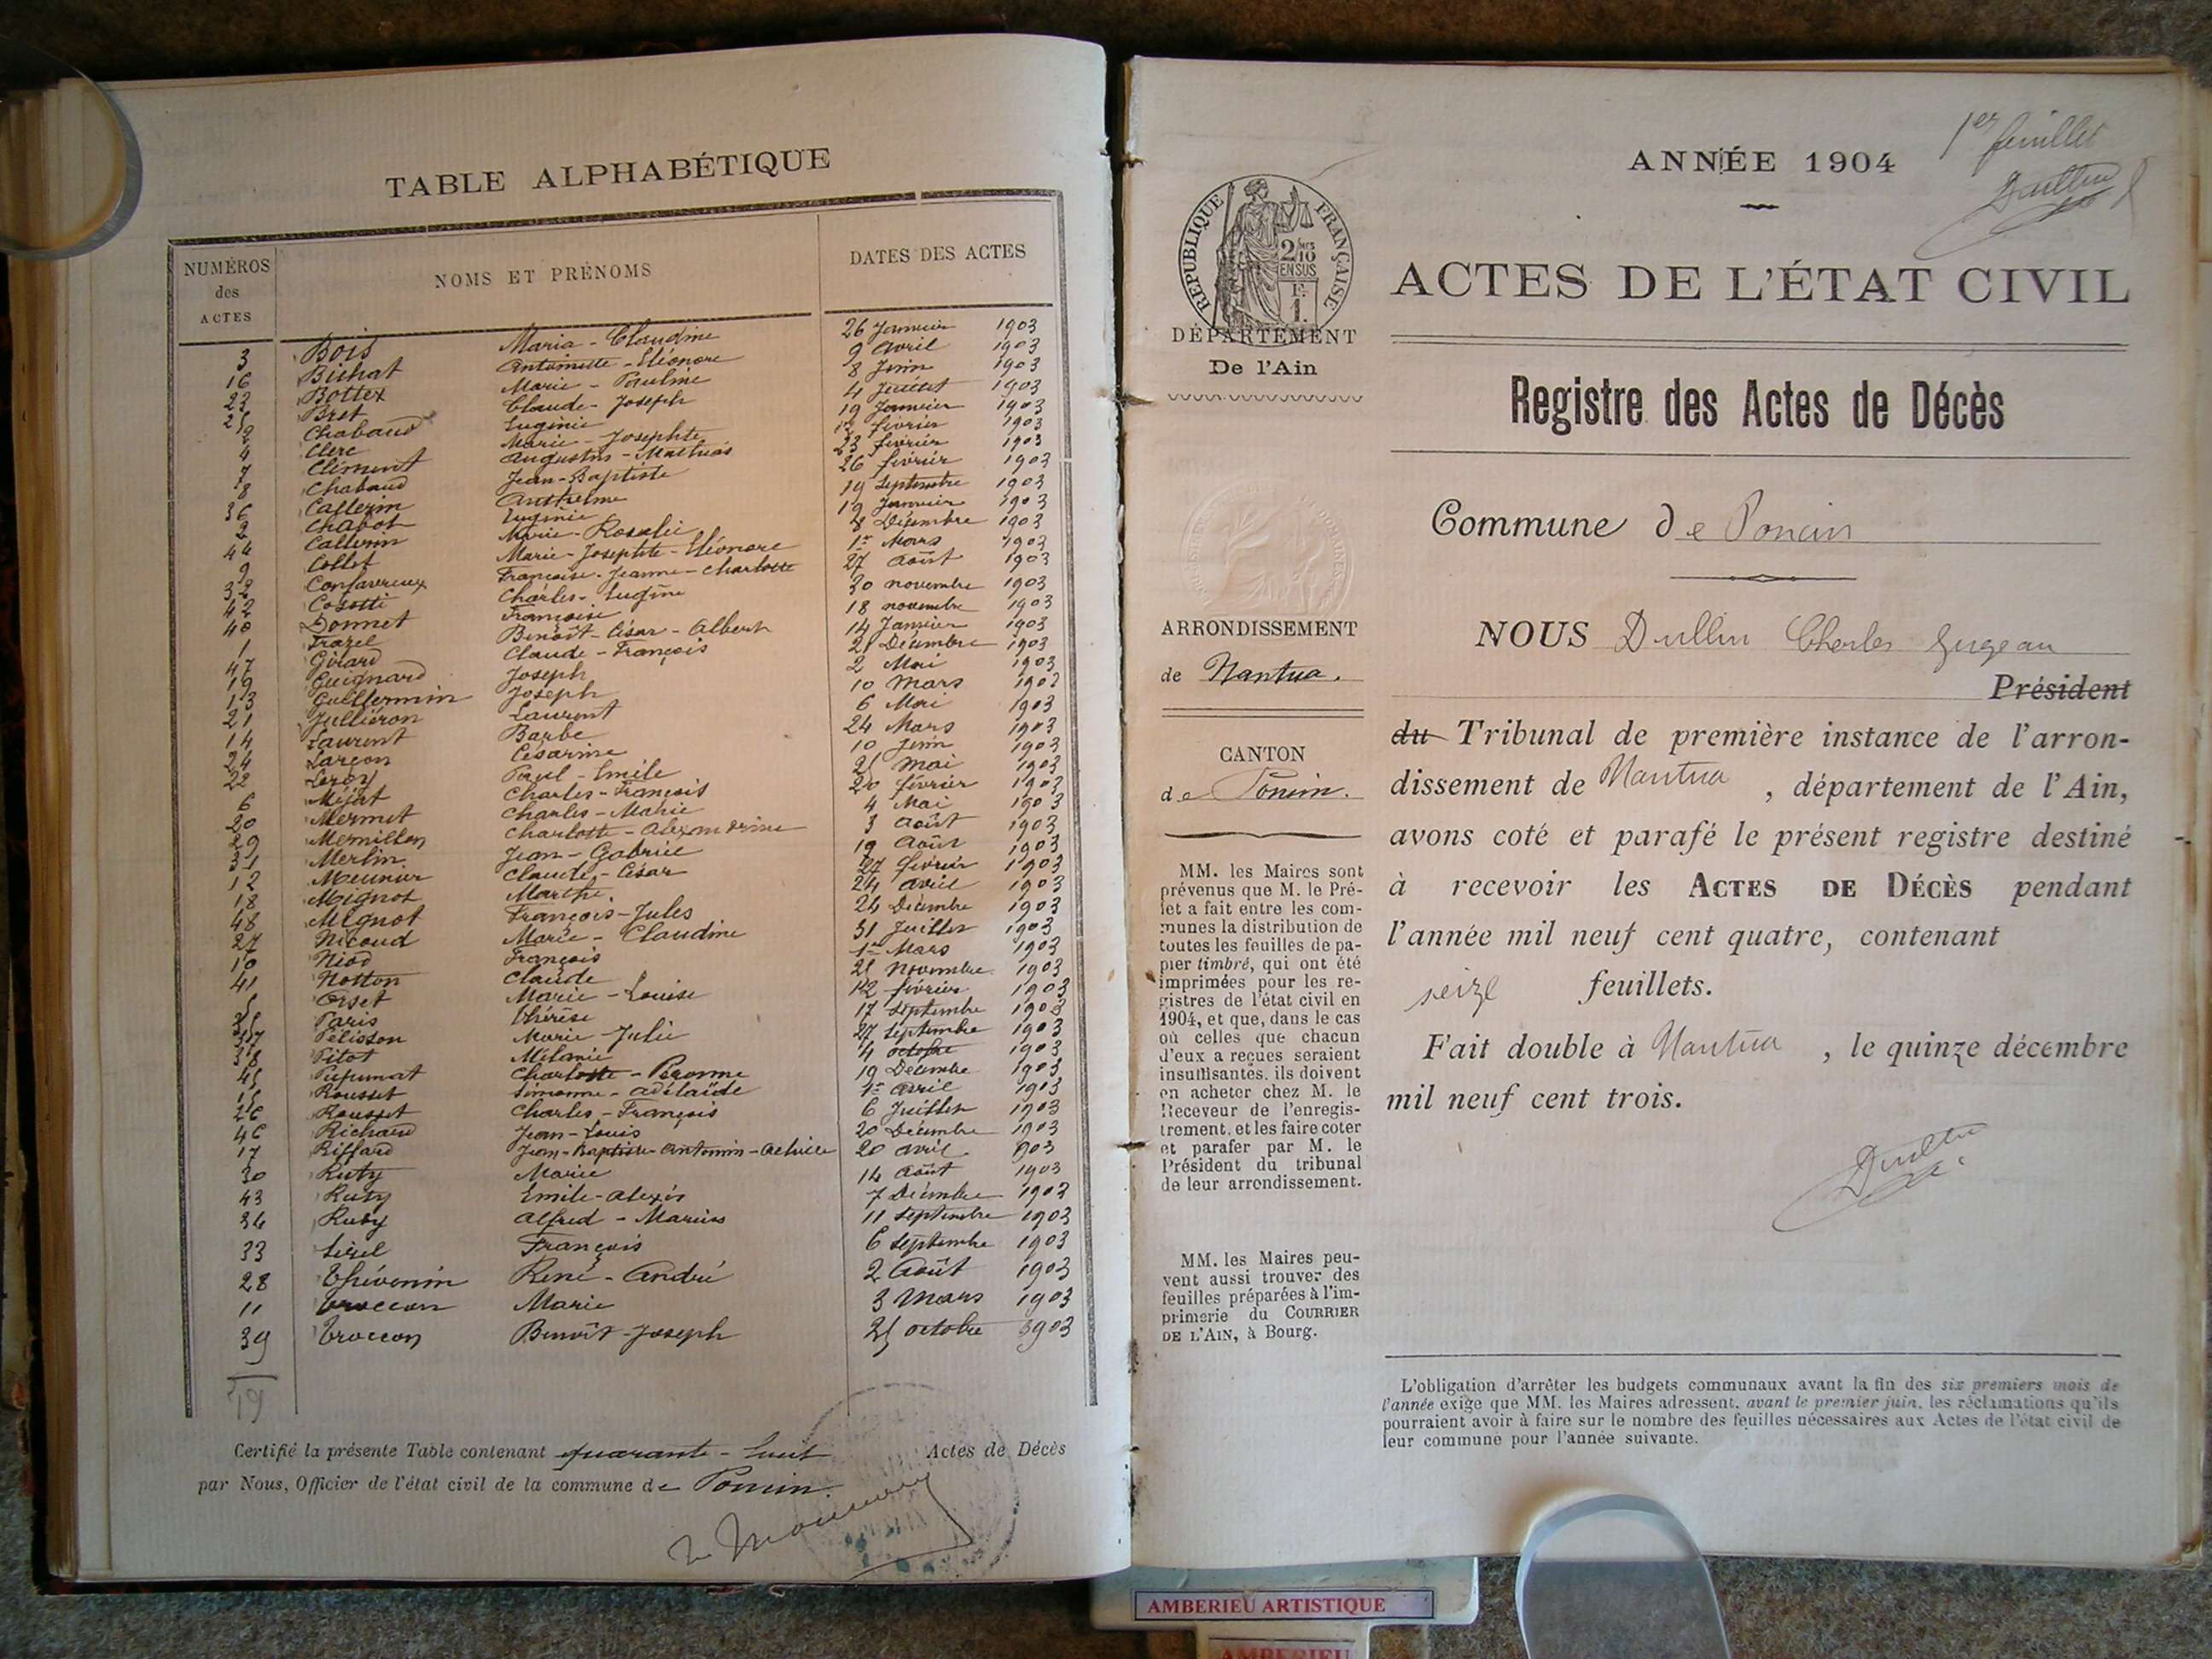 TABLE ALPHABÉTIQUE
NUMÉROS des ACTES NOMS ET PRÉNOMS DATES DES ACTES
3 Bois Maria - Claudine 26 Janvier 1903
16 Bichat Antoinette - Eléonore 9 avril 1903
23 Bottex Marie - Pauline 8 Juin 1903
25 Bret Claude - Joseph 4 Juillet 1903
Chabaud Eugénie 19 Janvier 1903
4 Clerc Marie - Josephte 12 février 1903
7 Clément Augustin - Mathias 23 février 1903
8 Chabaud Jean - Baptiste 26 février 1903
36 Callerin Anthelme 19 Septembre 1903
2 Chabot Eugénie 19 Janvier 1903
44 Callerin Marie - Rosalie 8 Décembre 1903
9 Collet Marie - Josephte - Eléonore 1er Mars 1903
32 Confavreux Françoise - Jeanne - Charlotte 27 août 1903
42 Charles - Eugène 30 novembre 1903
40 Donnet Françoise 18 novembre 1903
1 Frazel Benoît - César - Albert 14 Janvier 1903
47 Girard Claude - François 21 Décembre 1903
19 Guignard Joseph 2 Mai 1903
13 Guillermin Joseph 10 Mars 1903
21 Julliéron Laurent 6 Mai 1903
14 Laurent Barbe 24 Mars 1903
24 Larçon Césarine 10 Juin 1903
22 Leroy Paul - Emile 21 Mai 1903
6 Méjat Charles - François 20 février 1903
20 Mermet Charles - Marie 4 Mai 1903
29 Mermillon Charlotte - Alexandrine 3 août 1903
31 Merlin Jean - Gabriel 19 Août 1903
12 Meunier Claude - César 27 février 1903
18 Mignot Marthe. 24 avril 1903
48 Mignot François - Jules 24 Décembre 1903
27 Nicoud Marie - Claudine 31 Juillet 1903
10 Niod François 1er Mars 1903
41 Notton Claude 21 Novembre 1903
5 Orset Marie - Louise 12 février 1903
35 Paris Thérèse 17 Septembre 1903
37 Pélisson Marie Julie 27 Septembre 1903
38 Pitot Mélanie 4 octobre 1903
45 Pupunat Charlotte - Péronne 19 Décembre 1903
15 Rousset Simonne - adélaïde 1er avril 1903
26 Rousset Charles - François 6 Juillet 1903
46 Richard Jean - Louis 20 Décembre 1903
17 Riffard Jean - Baptiste - Antonin - Achille 20 avril 903
30 Ruty Marie 14 août 1903
43 Ruty Emile - Alexis 7 Décembre 1903
34 Ruby Alfred - Marius 11 Septembre 1903
33 François 6 Septembre 1903
28 Thévenin René - André 2 Août 1903
11 Troccon Marie 3 Mars 1903
39 Troccon Benoît - Joseph 25 octobre 1903
Certifié la présente Table contenant quarante - huit Actes de Décès
par Nous, Officier de l'état civil de la commune de Poncin.
1er feuillet
Dullin
ANNÉE 1904
RÉPUBLIQUE FRANÇAISE
2/10 EN SUS
1 F.
DÉPARTEMENT
De l'Ain
ACTES DE L'ÉTAT CIVIL
Registre des Actes de Décès
Commune de Poncin
ARRONDISSEMENT
de Nantua.
CANTON
de Poncin.
MM. les Maires sont
prévenus que M. le Pré-
fet a fait entre les com-
munes la distribution de
toutes les feuilles de pa-
pier timbré, qui ont été
imprimées pour les re-
gistres de l'état civil en
1904, et que, dans le cas
où celles que chacun
d'eux a reçues seraient
insuffisantes, ils doivent
en acheter chez M. le
Receveur de l'enregis-
trement, et les faire coter
et parafer par M. le
Président du tribunal
de leur arrondissement.
MM. les Maires peu-
vent aussi trouver des
feuilles préparées à l'im-
primerie du COURRIER
DE L'AIN, à Bourg.
NOUS Dullin Charles
Président
du Tribunal de première instance de l'arron-
dissement de Nantua, département de l'Ain,
avons coté et parafé le présent registre destiné
à recevoir les ACTES DE DÉCÈS pendant
l'année mil neuf cent quatre, contenant
seize feuillets.
Fait double à Nantua, le quinze décembre
mil neuf cent trois.
Dullin
L'obligation d'arrêter les budgets communaux avant la fin des six premiers mois de
l'année exige que MM. les Maires adressent, avant le premier juin, les réclamations qu'ils
pourraient avoir à faire sur le nombre des feuilles nécessaires aux Actes de l'état civil de
leur commune pour l'année suivante.
AMBERIEU ARTISTIQUE
AMBERIEU